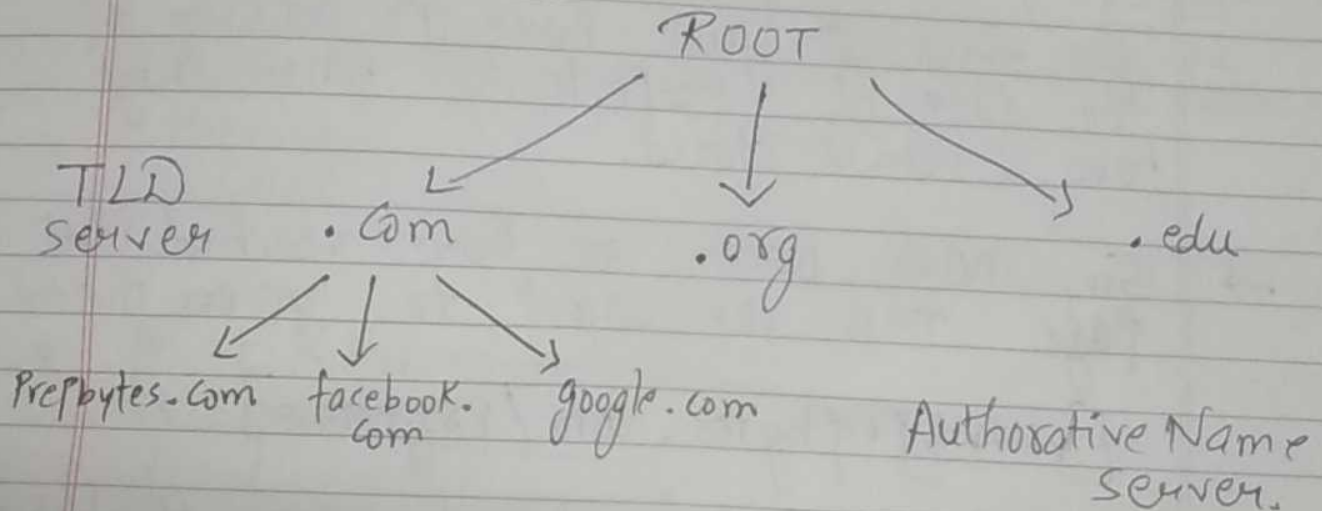 ROOT
TLD
server .com .org .edu
Prepbytes.com facebook. google.com
com
Authorative Name
server.